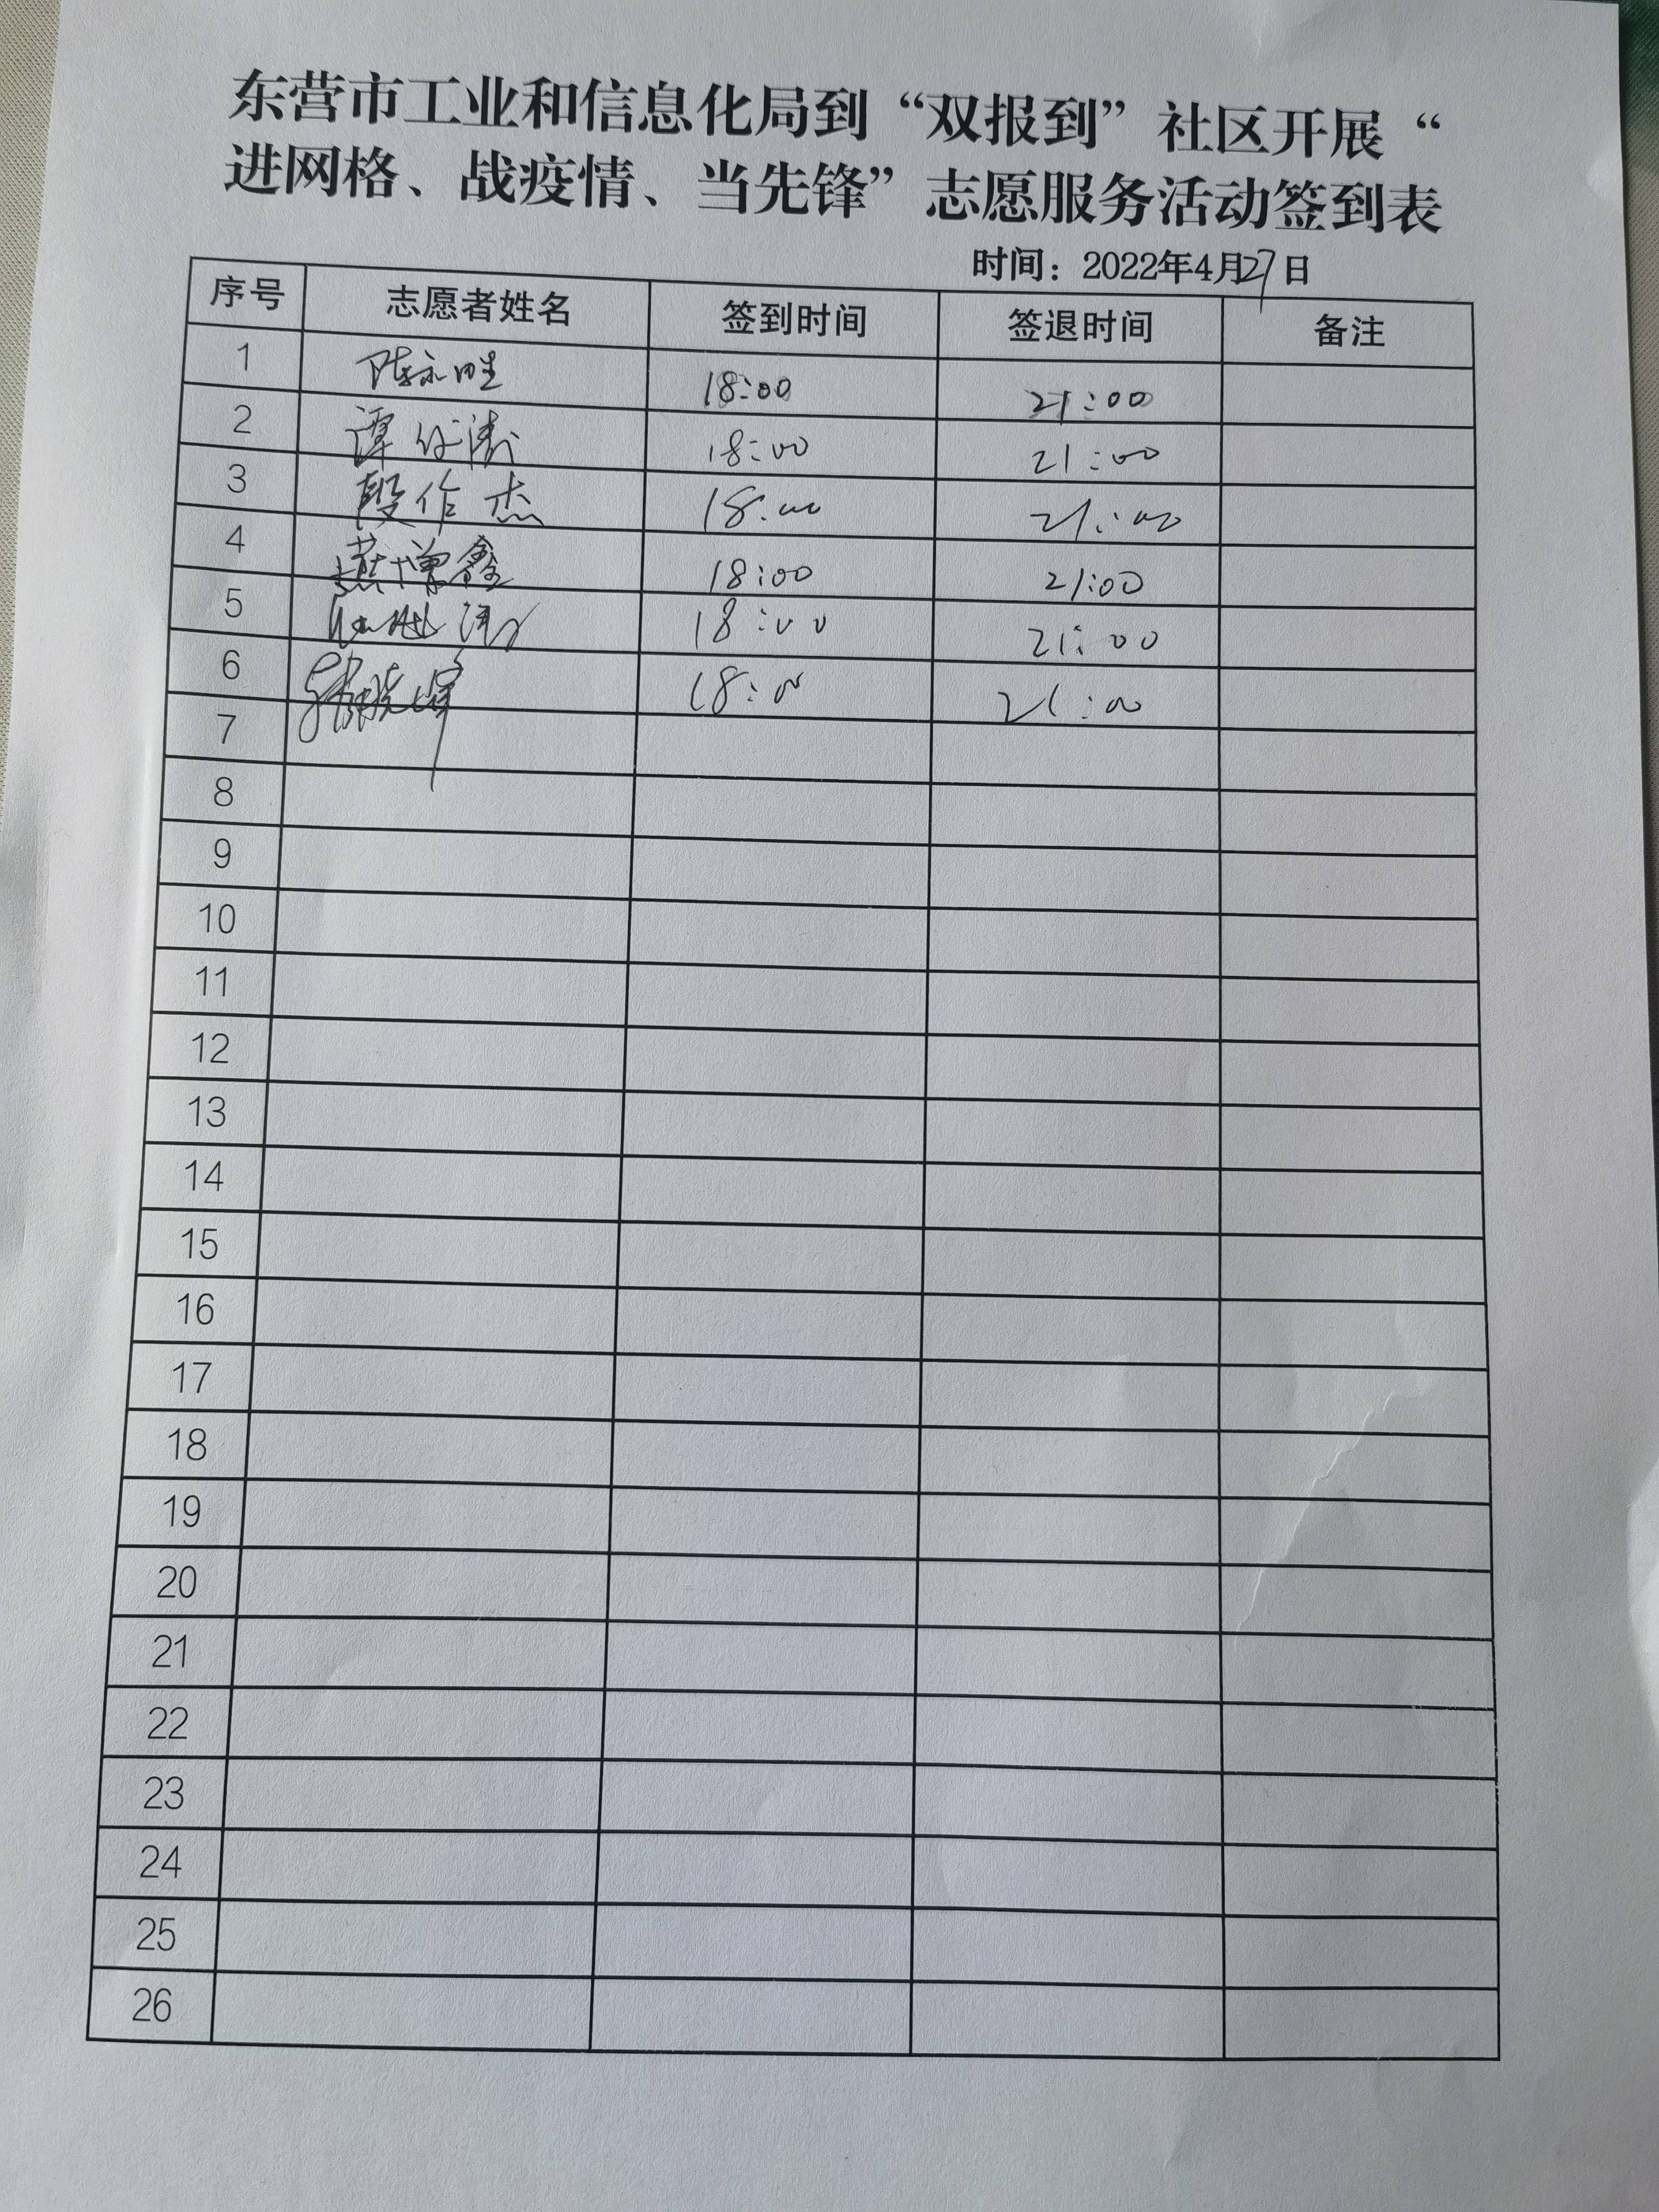 东营市工业和信息化局到“双报到”社区开展“
进网格、战疫情、当先锋”志愿服务活动签到表
时间：2022年4月27日
序号 志愿者姓名 签到时间 签退时间 备注
1 陈永胜 18:00 21:00
2 谭 18:00 21:00
3 段作杰 18:00 21:00
4 燕增鑫 18:00 21:00
5 18:00 21:00
6 韩晓峰 18:00 21:00
7
8
9
10
11
12
13
14
15
16
17
18
19
20
21
22
23
24
25
26